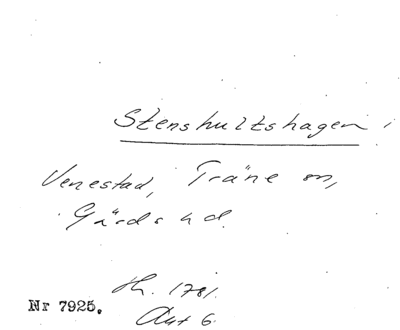 Stenshultshagen i
Venestad, Träne sn,
Gärds hd.
Hh. 1781.
Nr 7925.
Akt 6.